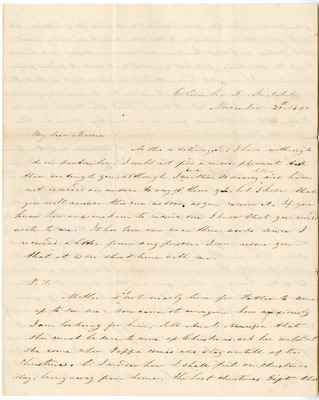 Columbia F. Institute
November 28th
My dear Mamma
As this is Saturday, and I have nothing to
do in particular, I could not find a more pleasant task
than writing to you, although I written so many, and have
not received an answer to any of them yet, but I hope that
you will answer this one as soon as you receive it. If you
knew how anxious I am to receive one I know that you would
write to me. It has been now over three weeks since I
received a letter from any person. I can assure you
that it is no short time with me.
P. S.
Mother is it not nearly time for Father to come
up to see me. You cannot imagine how anxiously
I am looking for him. Tell Aunt that
she must be sure to come up Christmas, ask her
she come when Pappa comes and stay until after
Christmas. I wonder how I shall feel on Christmas
day, being away from home. The last Christmas that